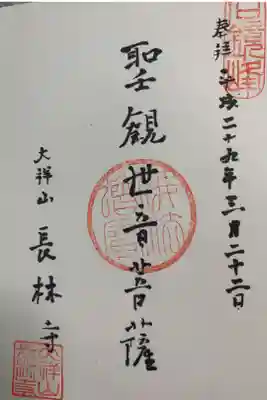 奉拝 平成二十九年三月二十二日
聖観世音菩薩
大祥山 長林寺